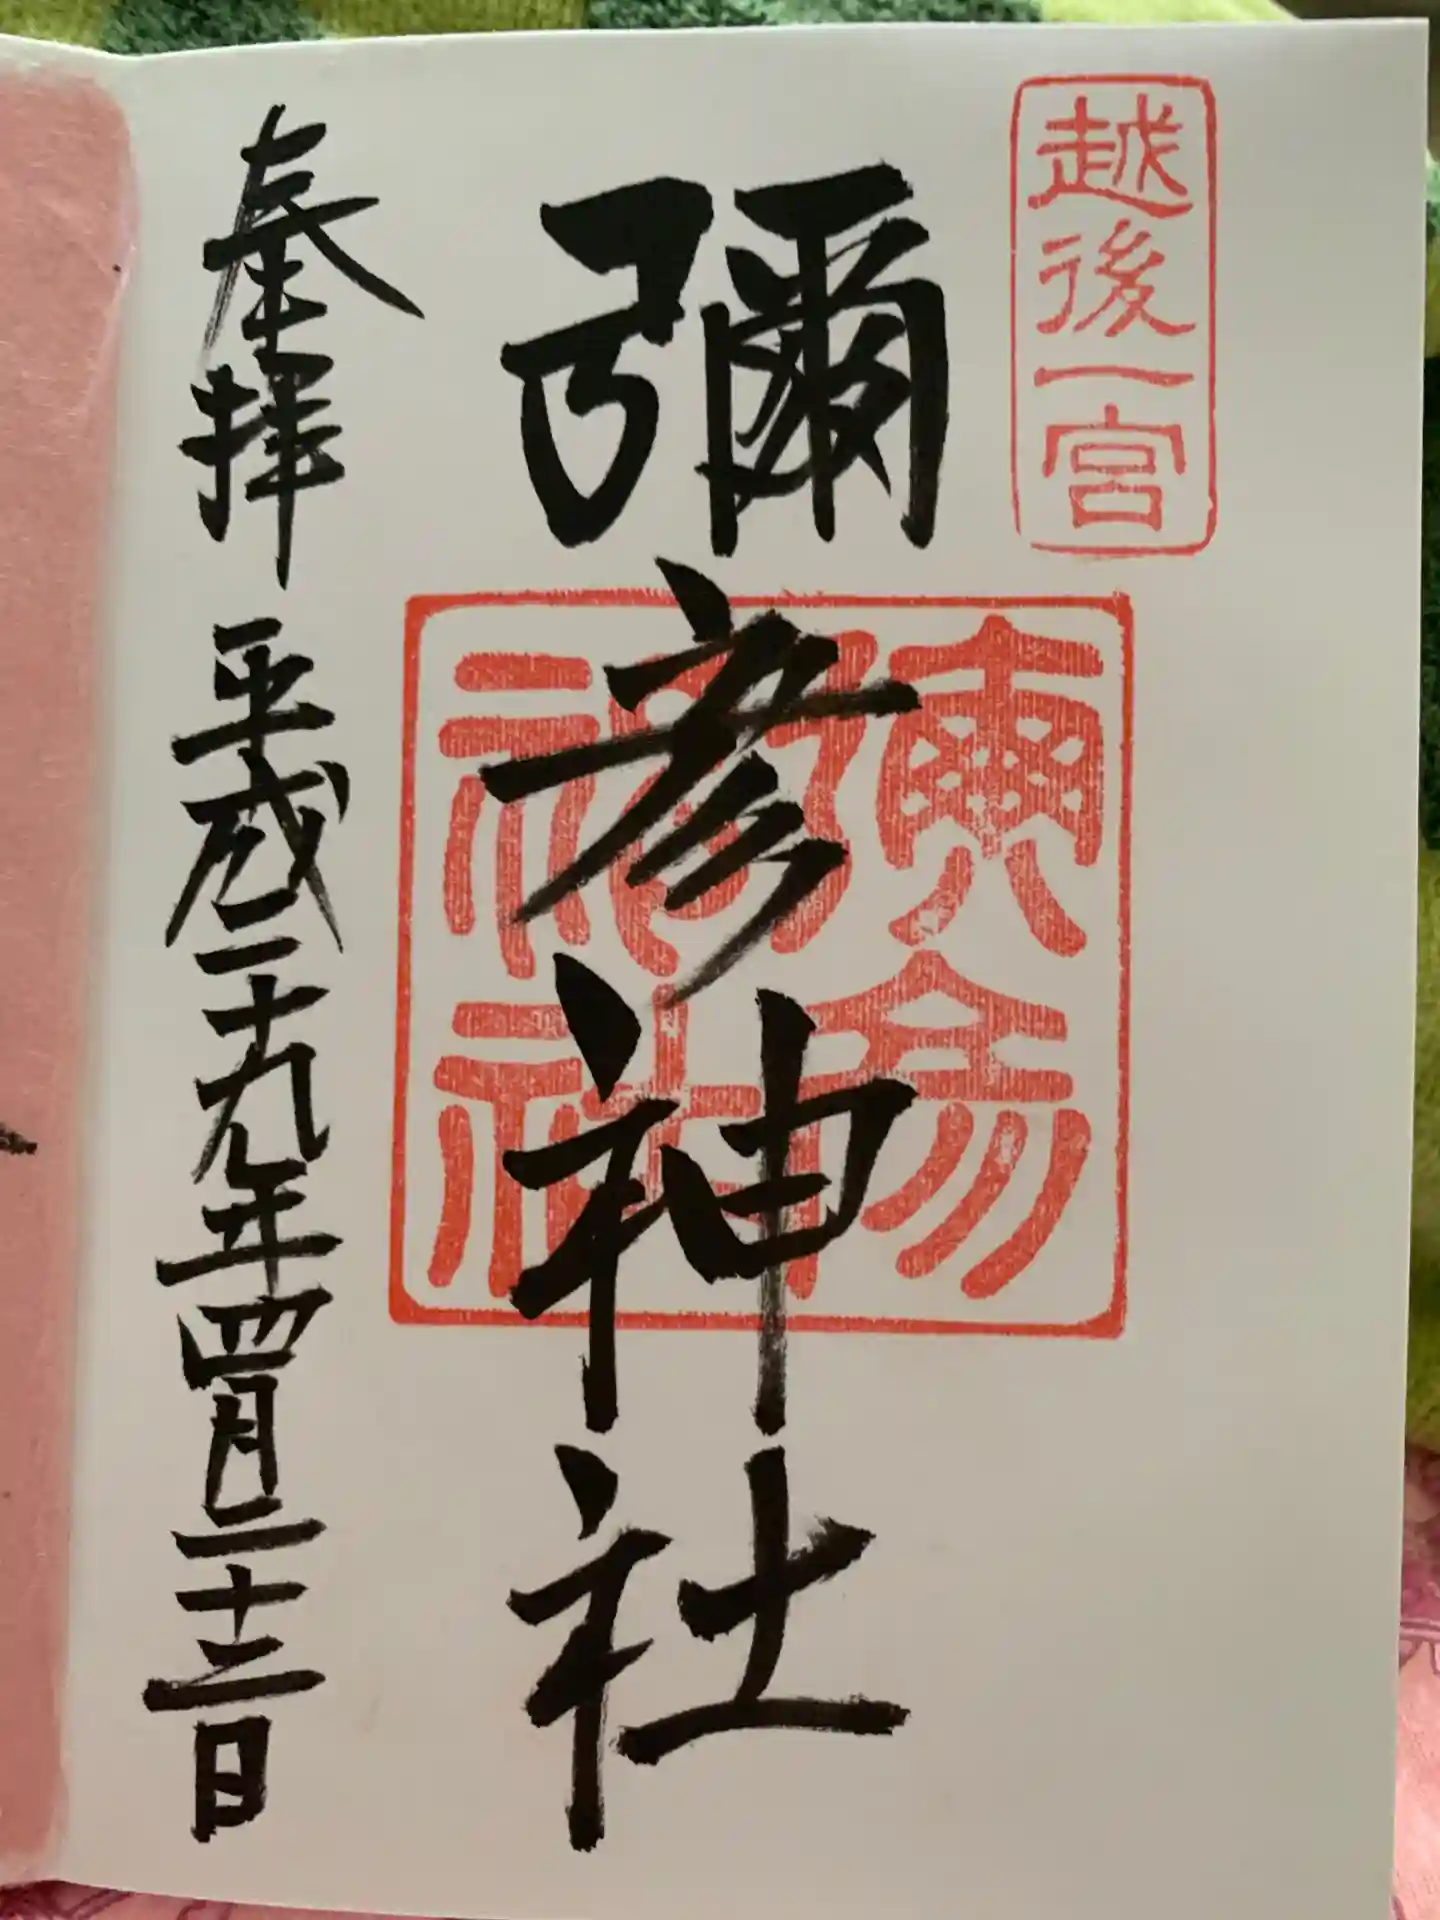 越後一宮
彌彦神社
彌彦神社
奉拝 平成二十九年四月二十三日